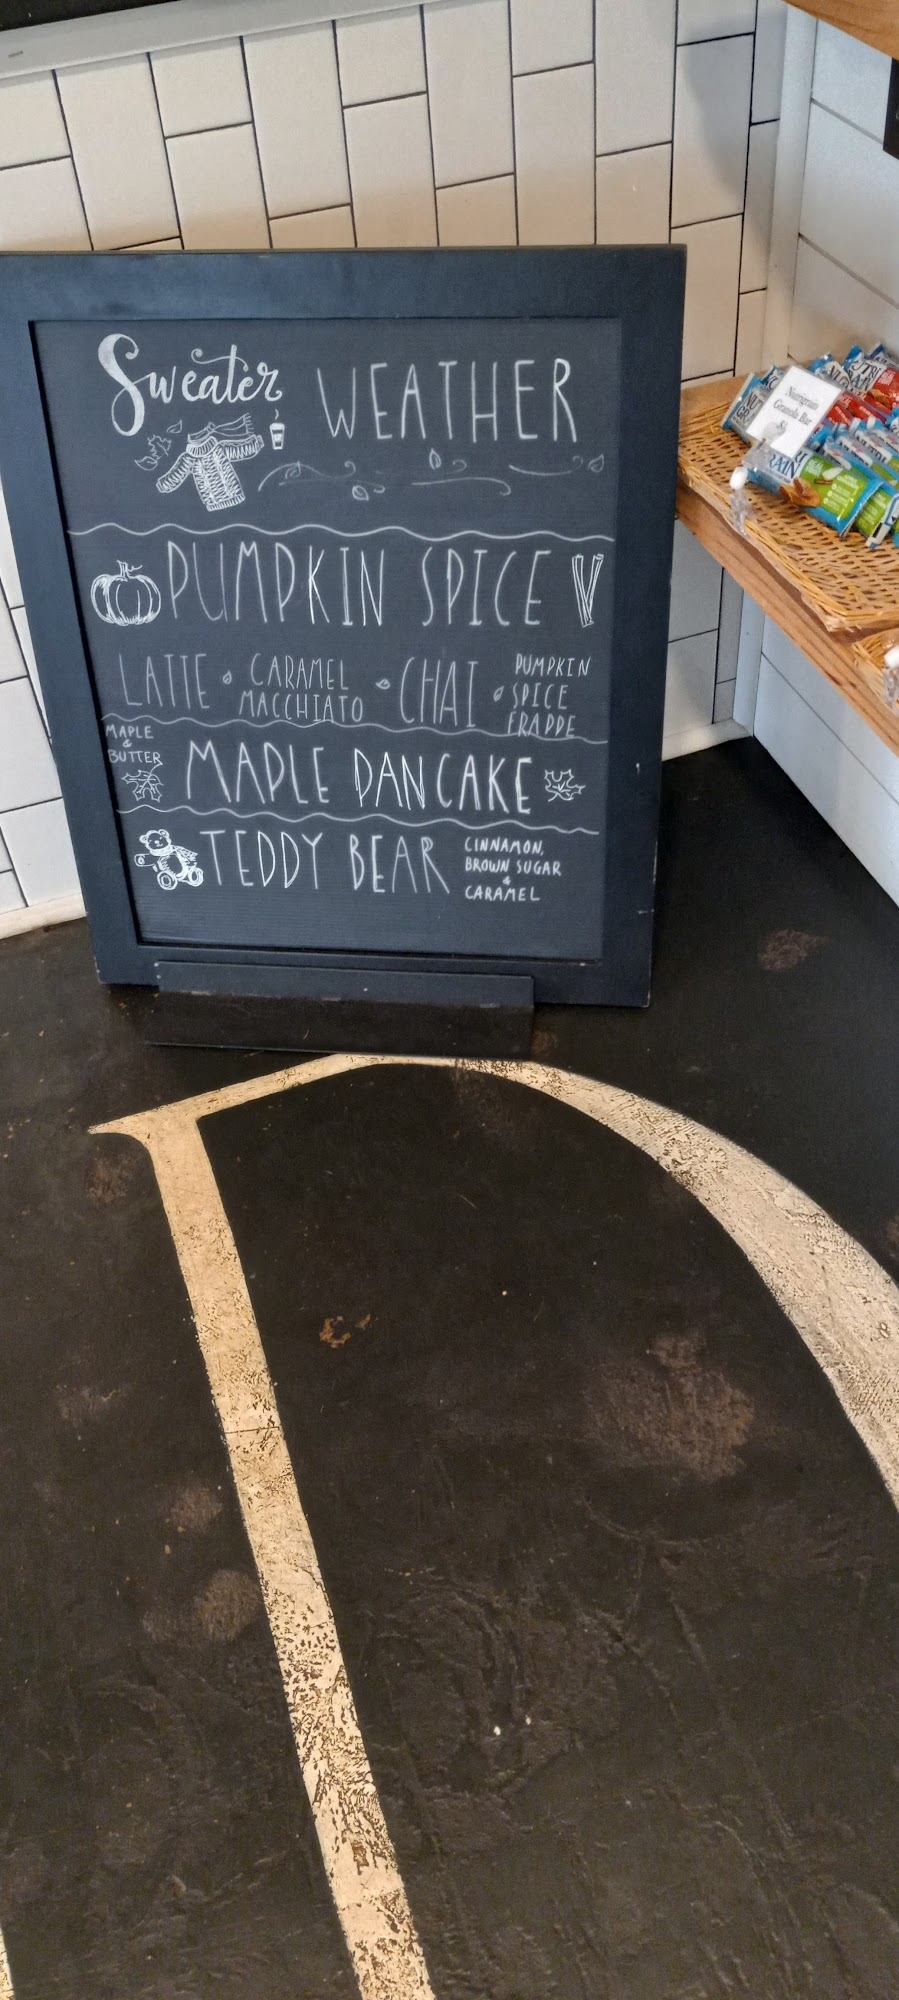 Sweater WEATHER
PUMPKIN SPICE
LATTE CARAMEL MACCHIATO CHAI PUMPKIN SPICE FRAPPE
MAPLE & BUTTER
MAPLE PANCAKE
TEDDY BEAR
CINNAMON,
BROWN SUGAR
&
CARAMEL
Nutrigrain
Granola Bar